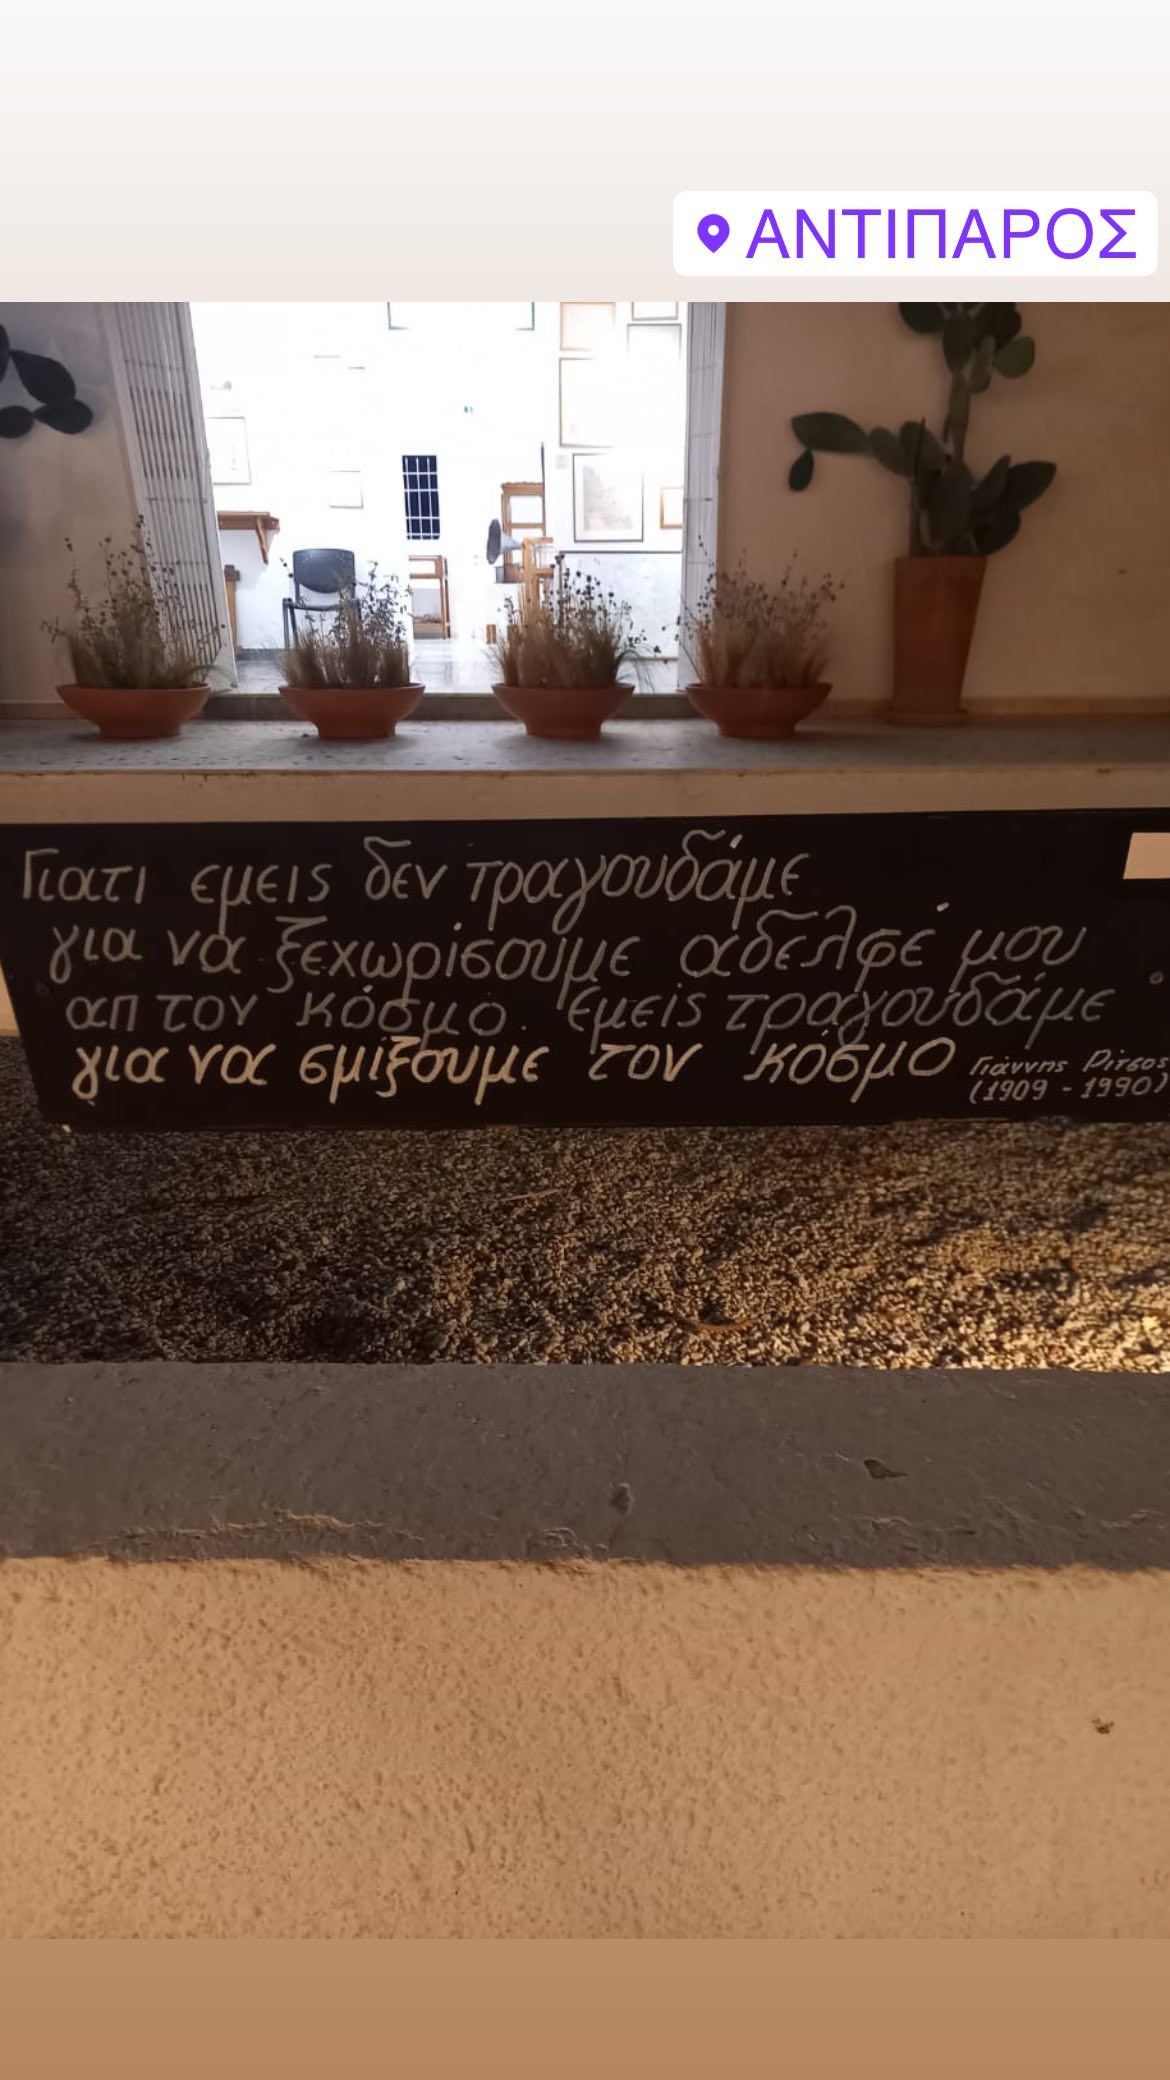 ΑΝΤΙΠΑΡΟΣ
Γιατι εμεις δεν τραγουδάμε
για να ξεχωρίσουμε αδελφέ μου
απ τον κόσμο. εμείς τραγουδάμε
για να σμίξουμε τον κόσμο
Γιάννης Ρίτσος
(1909 - 1990)